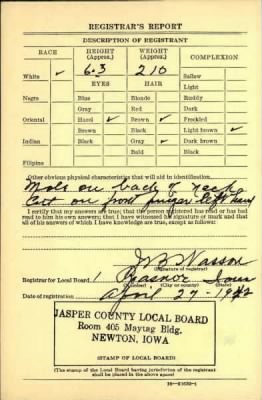 REGISTRAR'S REPORT
DESCRIPTION OF REGISTRANT
RACE HEIGHT (Approx.) WEIGHT (Approx.) COMPLEXION
White ✓ 6-3 210 Sallow
EYES HAIR Light
Negro Blue Blonde Ruddy
Gray Red Dark
Oriental Hazel ✓ Brown ✓ Freckled
Brown Black Light brown ✓
Indian Black Gray Dark brown
Bald Black
Filipino
Other obvious physical characteristics that will aid in identification.
Mole on back of neck
Cut on front finger left hand
I certify that my answers are true; that the person registered has read or has had
read to him his own answers; that I have witnessed his signature or mark and that
all of his answers of which I have knowledge are true, except as follows:
(Signature of registrar)
Registrar for Local Board 1 Iowa
(Number) (City or county) (State)
Date of registration April 27-1942
JASPER COUNTY LOCAL BOARD
Room 405 Maytag Bldg.
NEWTON, IOWA
(STAMP OF LOCAL BOARD)
(The stamp of the Local Board having jurisdiction of the registrant
shall be placed in the above space.)